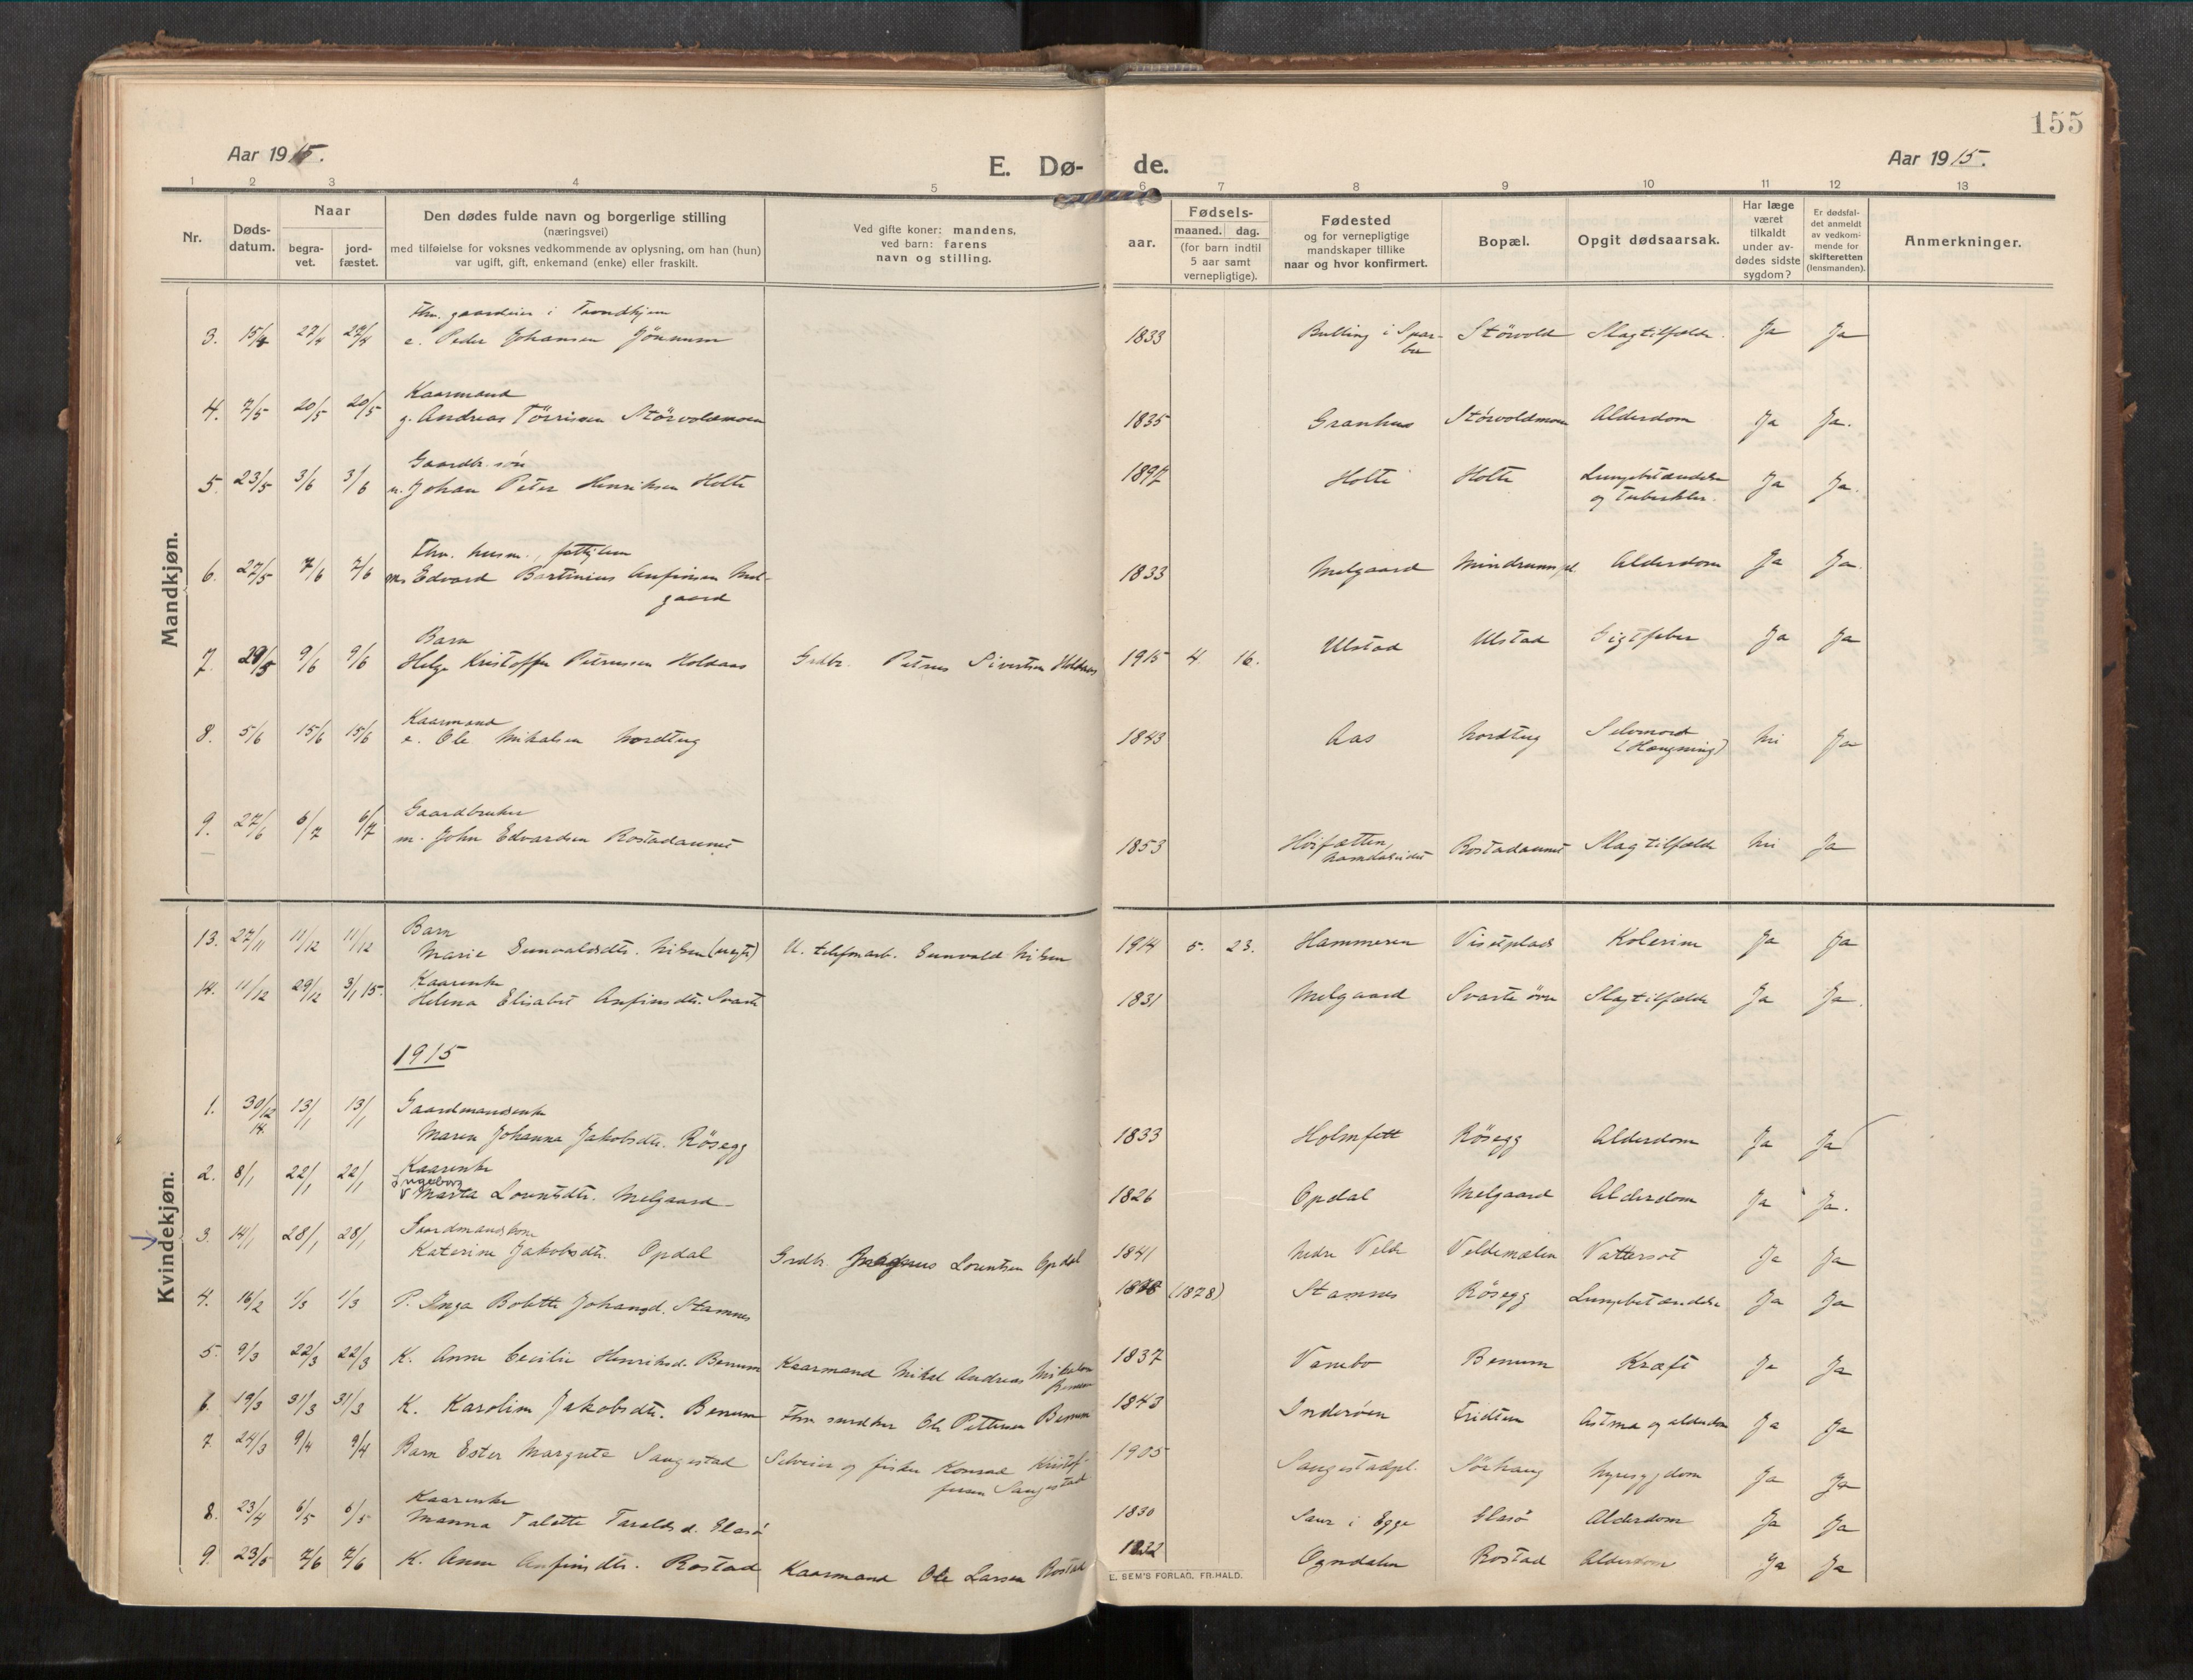 155
Aar 1915.
E. Dø- de.
Aar 1915.
1 2 3 4 5 6 7 8 9 10 11 12 13
Nr.
Døds-
datum.
Naar
begra-
vet.
jord-
fæstet.
Den dødes fulde navn og borgerlige stilling
(næringsvei)
med tilføielse for voksnes vedkommende av oplysning, om han (hun)
var ugift, gift, enkemand (enke) eller fraskilt.
Ved gifte koner: mandens,
ved barn: farens
navn og stilling.
Fødsels-
aar.
maaned. dag.
(for barn indtil
5 aar samt
vernepligtige).
Fødested
og for vernepligtige
mandskaper tillike
naar og hvor konfirmert.
Bopæl.
Opgit dødsaarsak.
Har læge
været
tilkaldt
under av-
dødes sidste
sygdom?
Er dødsfal-
det anmeldt
av vedkom-
mende for
skifteretten
(lensmanden).
Anmerkninger.
Mandkjøn.
Fhv. gaardeier i Trondhjem
3. 15/4 27/4 27/4 e. Peder Johansen Jönnum 1833 Bulling i Spar- Störvold Slagtilfælde. Ja Ja
bu
Kaarmand
4. 7/5 20/5 20/5 g. Andreas Törrisen Störvoldmoen 1835 Granhus Störvoldmoen Alderdom Ja Ja.
Gaardbr. søn
5. 23/5 3/6 3/6 u. Johan Peter Henriksen Holte 1897 Holte Holte Lungebetændelse Ja Ja.
og tuberkler.
Fhv. husm., fattiglem
6. 27/5 7/6 7/6 Edvard Bartinius Anfinsen Mel- 1833 Melgaard Alderdom Ja Ja.
gaard
Barn
7. 29/5 9/6 9/6 Helge Kristoffer Petrussen Holdaas Grdbr. Petrus Sivertsen Holdaas 1915 4. 16. Ulstad Ulstad Gigtfeber Ja Ja
Kaarmand
8. 5/6 15/6 15/6 e. Ole Mikalsen Nordtug 1843 Aas Nordtug Selvmord Nei Ja
(Hængning)
Gaardbruker
9. 27/6 6/7 6/7 m. John Edvardsen Rostadaunet 1853 Rostadaunet Slagtilfælde Nei Ja
Kvindekjøn.
Barn
13. 27/11 11/12 11/12 Marie Sunvaldsdtr. Nilsen (uegte) U. telefonarb. Sunvald Nilsen 1914 5. 23. Hammeren Visetplads Kolerine Ja Ja
Kaarenke
14. 11/12 29/12 3/1 15. Helena Elisabet Anfinsdtr. Svarte 1831 Melgaard Svarte övre Slagtilfælde Ja Ja.
1915
1. 30/12 14. 13/1 13/1 Gaardmandsenke
Maren Johanna Jakobsdtr. Rösegg 1833 Holmfett Rösegg Alderdom Ja Ja
Kaarenke
2. 8/1 22/1 22/1 Ingeborg
Marta Lorentsdtr. Melgaard 1826 Opdal Melgaard Alderdom Ja Ja.
3. 14/1 28/1 28/1 Gaardmandskone
Katerine Jakobsdtr. Opdal Grdbr. Lorentsen Opdal 1841 Nedre Velde Veldemælen Vattersot Ja Ja
4. 16/2 1/3 1/3 P. Inga Bolette Johansd. Stamnes (1878) Stamnes Rösegg Lungebetændelse Ja Ja
5. 9/3 22/3 22/3 K. Anne Cecilie Henriksd. Benum Kaarmand Mikal Andreas Mikalsen 1837 Vambo Benum Kræft Ja Ja
Benum
6. 19/3 31/3 31/3 K. Karoline Jakobsdtr. Benum Ole Pettersen Benum 1843 Inderöen Fridtun Astma og alderdom Ja Ja
7. 24/3 9/4 9/4 Barn Ester Margrete Saugestad Selveier og fisker Konrad Kristof- 1905 Saugestadpl. Sörhaug Nyresygdom Ja Ja
fersen Saugestad
Kaarenke
8. 23/4 6/5 6/5 Manna Talette Taraldsd. Glasö 1830 Saur i Egge Glasö Alderdom Ja Ja
9. 23/5 7/6 7/6 K. Anne Anfinsdtr. Rostad Kaarmand Ole Larsen Rostad 1832 Ogndalen Rostad Alderdom Ja Ja
E. SEM'S FORLAG, FR.HALD.